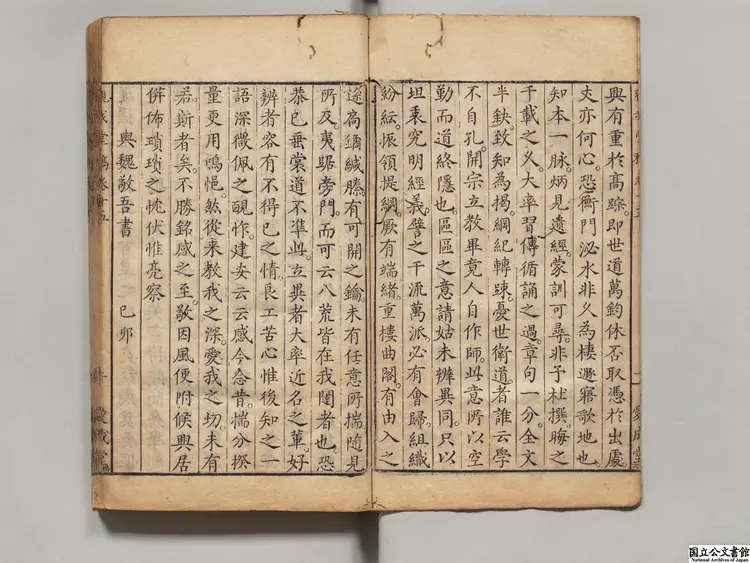 興有重於高踪。即世道萬鈞休否取憑於出處。
夫亦何心。恐衡門泌水非久為棲遯寤歌地也。
知本一脉。炳見遺經。蒙訓可尋。非予杜撰。晦之
千載之久。大率習傳循誦之過。章句一分。全文
半缺。致知為揭。綱紀轉踈。憂世衛道者誰云學
不自孔。開宗立教畢竟人自作師。此意所以空
勤而道終隱也。區區之意請姑未辨異同。只以
坦秉究明經義。譬之千流萬派。必有會歸。組織
紛紜。振領提綱。厥有端緒。重樓曲閣。有由入之
鐍緘縢。有可開之鑰。未有任意所揣。隨見
所及。夷踞旁門。而可云八荒皆在我闥者也。恐
恭己垂裳道不準此。立異者大率近名之輩。好
辨者容有不得已之情。良工苦心惟後知之一
語深佩之靦怍。建安云云感今念昔。揣分揆
量更用嗚悒。然從來教我之深。愛我之切。未有
若斯者矣。不勝銘感之至。敬因風便附候興居
併佈瑣瑣之忱伏惟亮察
與魏敬吾書 己卯
卷十五
成堂
国立公文書館
National Archives of Japan